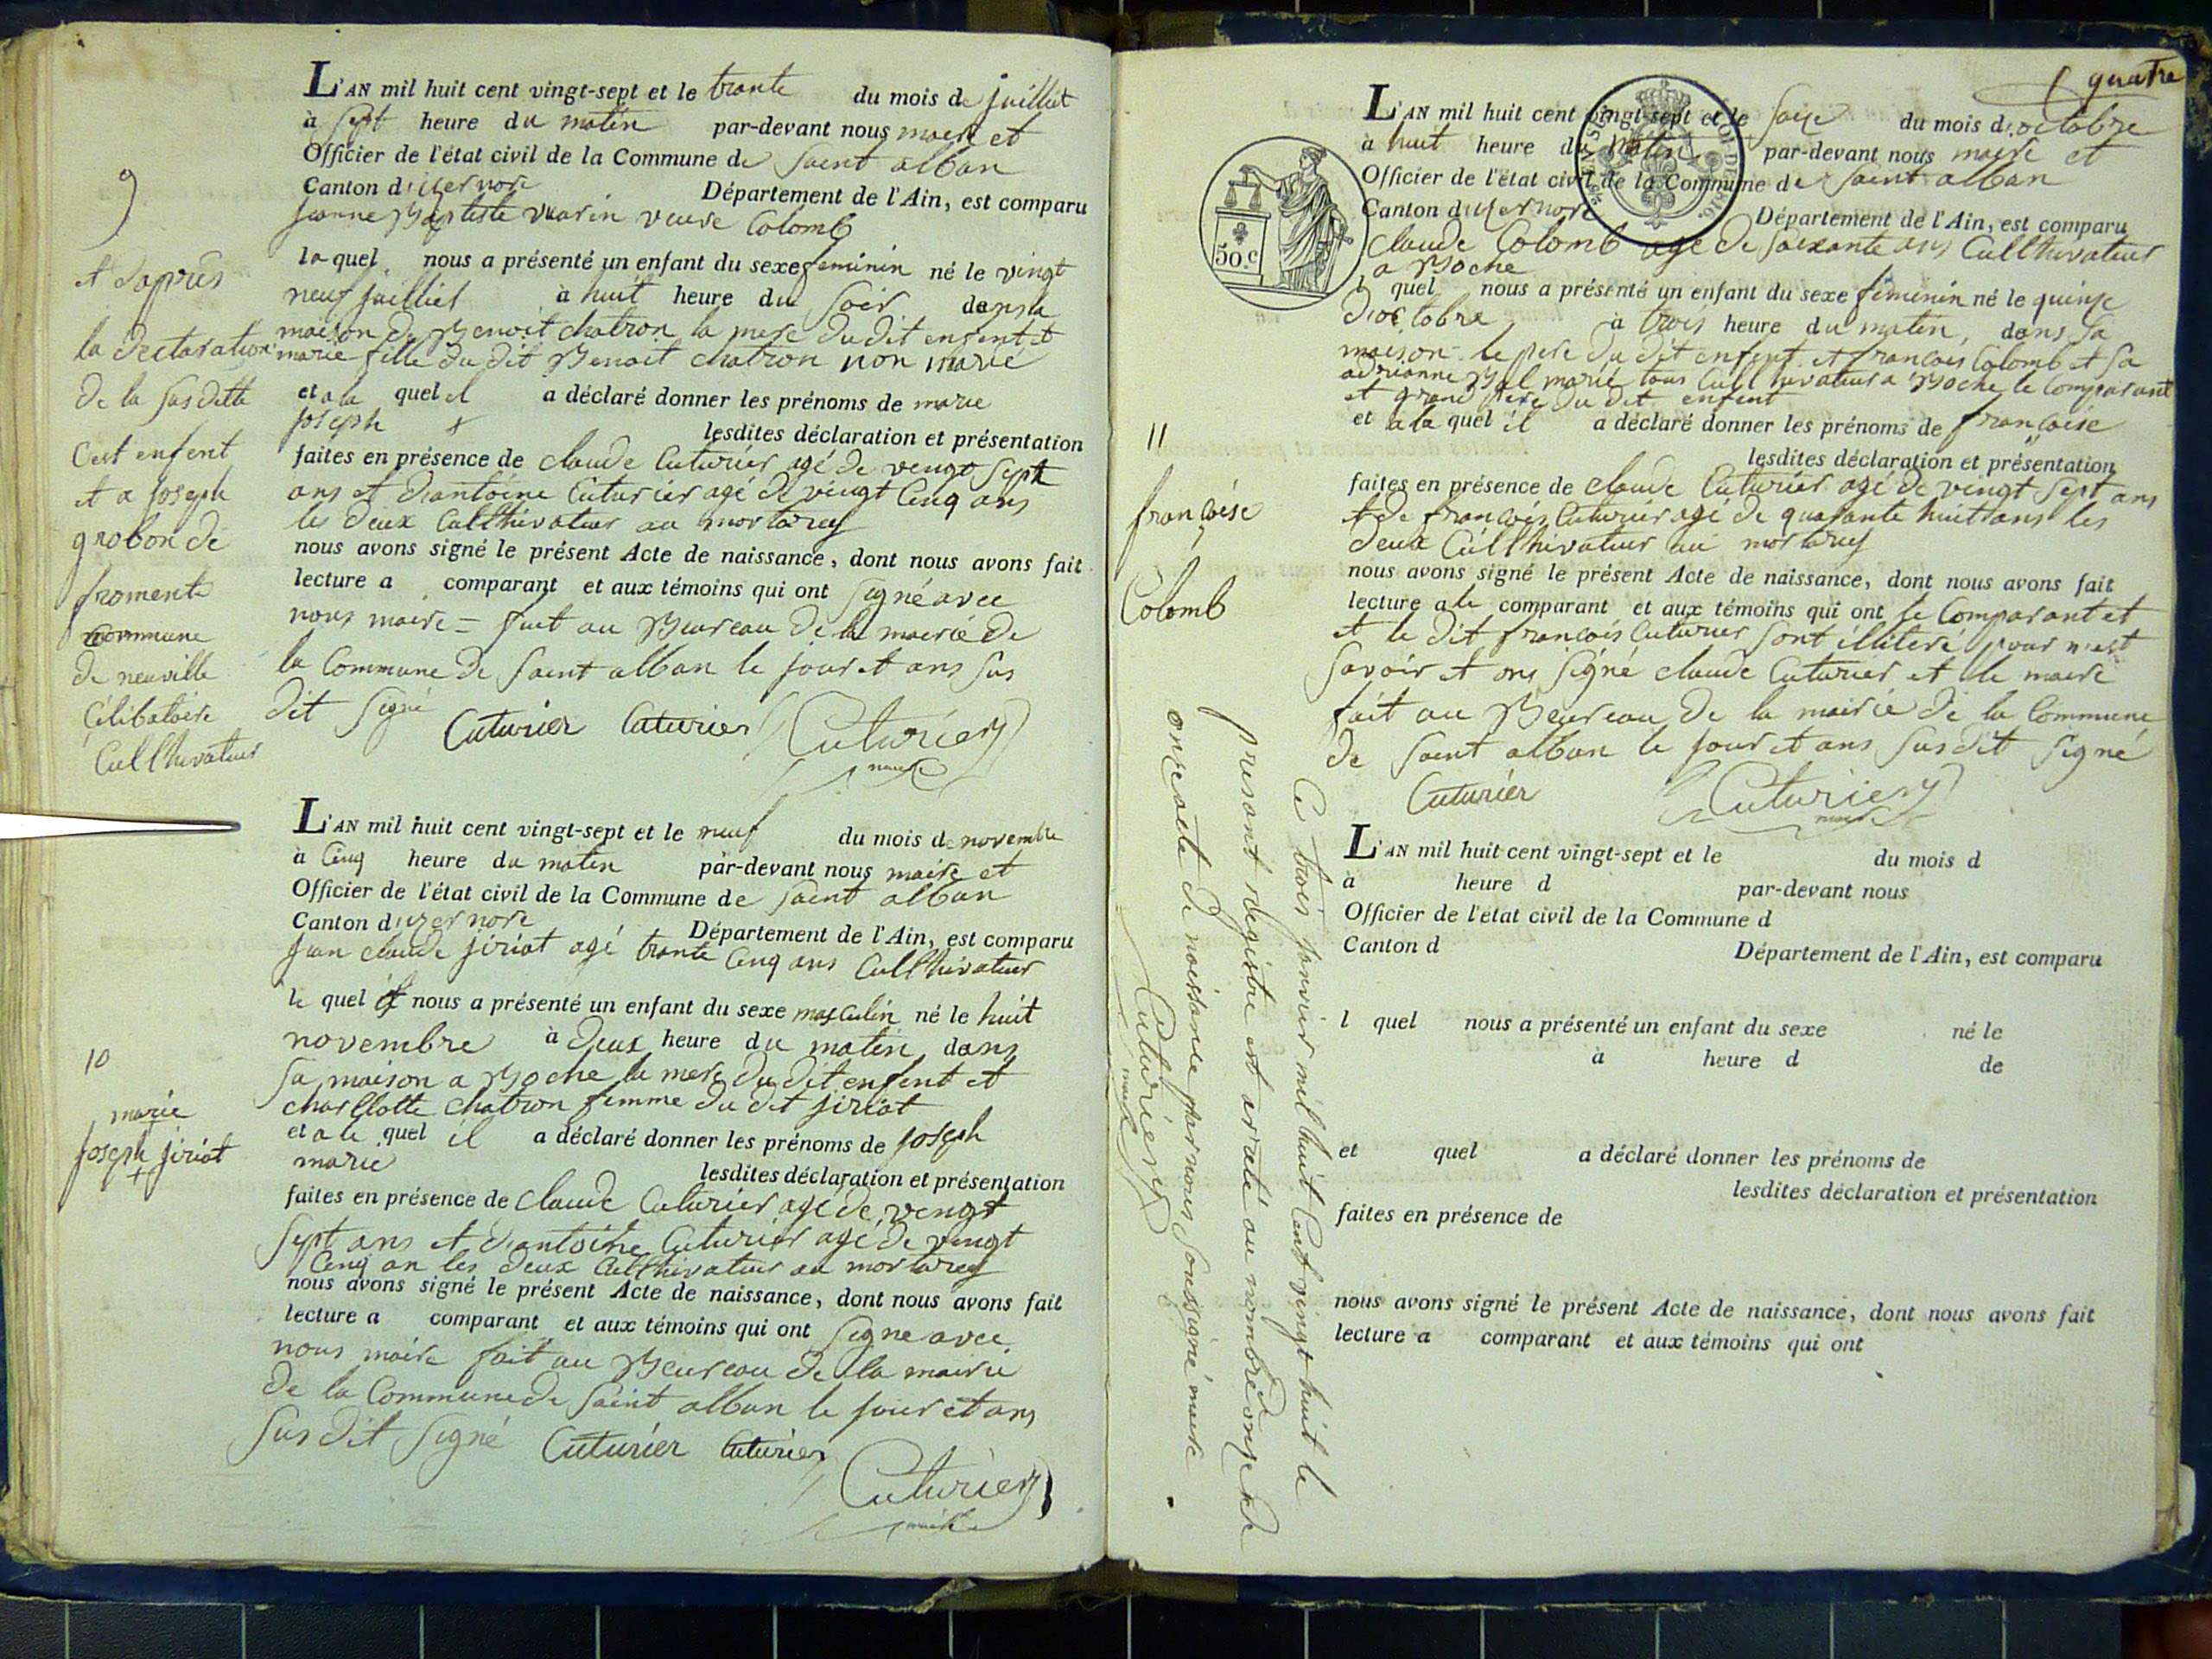 9
et d'apprès
la declaration
de la sus ditte
c'est enfent
et a joseph
grobon de
fromente
commune
de neuville
célibatoire
Cullthivateur
L'AN mil huit cent vingt-sept et le trante du mois de juilliet
à sept heure du matin par-devant nous maire et
Officier de l'état civil de la Commune de saint alban
Canton d'izernore Département de l'Ain, est comparu
jeanne Baptiste vuarin veuve Colomb
la quel nous a présenté un enfant du sexe feminin né le vingt
neuf juilliet à huit heure du soir dans la
maison de Benoit chatron la mere du dit enfent et
marie fille du dit Benoit chatron non marié
et a la quel il a déclaré donner les prénoms de marie
joseph lesdites déclaration et présentation
faites en présence de claude Cuturier agé de vengt sept
ans et d'antoine Cuturier agé de vingt Cinq ans
les deux Cullthivateur au mortarey
nous avons signé le présent Acte de naissance, dont nous avons fait
lecture a comparant et aux témoins qui ont signé avec
nous maire = fait au Beureau de la mairie de
la Commune de saint alban le jour et ans sus
dit signé Cuturier Cuturier Cuturier
maire
10
marie
joseph jiriot
L'AN mil huit cent vingt-sept et le neuf du mois de novembre
à Cinq heure du matin par-devant nous maire et
Officier de l'état civil de la Commune de saint alban
Canton d'izernore Département de l'Ain, est comparu
jean claude jiriot agé trante Cinq ans Cullthivateur
le quel il nous a présenté un enfant du sexe masculin né le huit
novembre à deux heure du matin dans
sa maison a Boche la mere du dit enfent et
charllotte chatron femme du dit jiriot
et a le quel il a déclaré donner les prénoms de joseph
marie lesdites déclaration et présentation
faites en présence de claude Cuturier agé de vengt
sept ans et d'antoine Cuturier agé de vingt
Cinq an les deux Cullthivateur au mortarey
nous avons signé le présent Acte de naissance, dont nous avons fait
lecture a comparant et aux témoins qui ont signe avec
nous maire fait au Beureau de la mairie
de la Commune de saint alban le jour et ans
sus dit signé Cuturier Cuturier
Cuturier
maire
quatre
50.c
L'AN mil huit cent vingt-sept et le saize du mois d'octobre
à huit heure du matin par-devant nous maire et
Officier de l'état civil de la Commune de saint alban
Canton d'izernore Département de l'Ain, est comparu
claude Colomb agé de soixante ans Cullthivateur
a Boche
l quel nous a présenté un enfant du sexe féminin né le quinze
d'octobre à trois heure du matin, dans sa
maison le pere du dit enfent et francois Colomb et sa
adrianne Bal marié tous Cullthivateur a Boche le Comparant
et grand pere du dit enfent
et a la quel il a déclaré donner les prénoms de francoise
lesdites déclaration et présentation
faites en présence de claude Cuturier agé de vingt sept ans
et de francois Cuturier agé de quarante huit ans les
deux Cullthivateur au mortarey
nous avons signé le présent Acte de naissance, dont nous avons fait
lecture a le comparant et aux témoins qui ont le Comparant et
et le dit francois Cuturier sont illiteré pour n'est
savoir et ons signé claude Cuturier et le maire
fait au Beureau de la mairie de la Commune
de saint alban le jour et ans sus dit signé
Cuturier Cuturier
maire
11
francoise
Colomb
Ce trois janvier mil huit Cent vingt huit le
presant régistre est arraté au nombre d'onze de
onze acte de naissance par nous soussigné maire
Cuturier
maire
L'AN mil huit cent vingt-sept et le du mois d
à heure d par-devant nous
Officier de l'état civil de la Commune d
Canton d Département de l'Ain, est comparu
l quel nous a présenté un enfant du sexe né le
à heure d de
et quel a déclaré donner les prénoms de
lesdites déclaration et présentation
faites en présence de
nous avons signé le présent Acte de naissance, dont nous avons fait
lecture a comparant et aux témoins qui ont